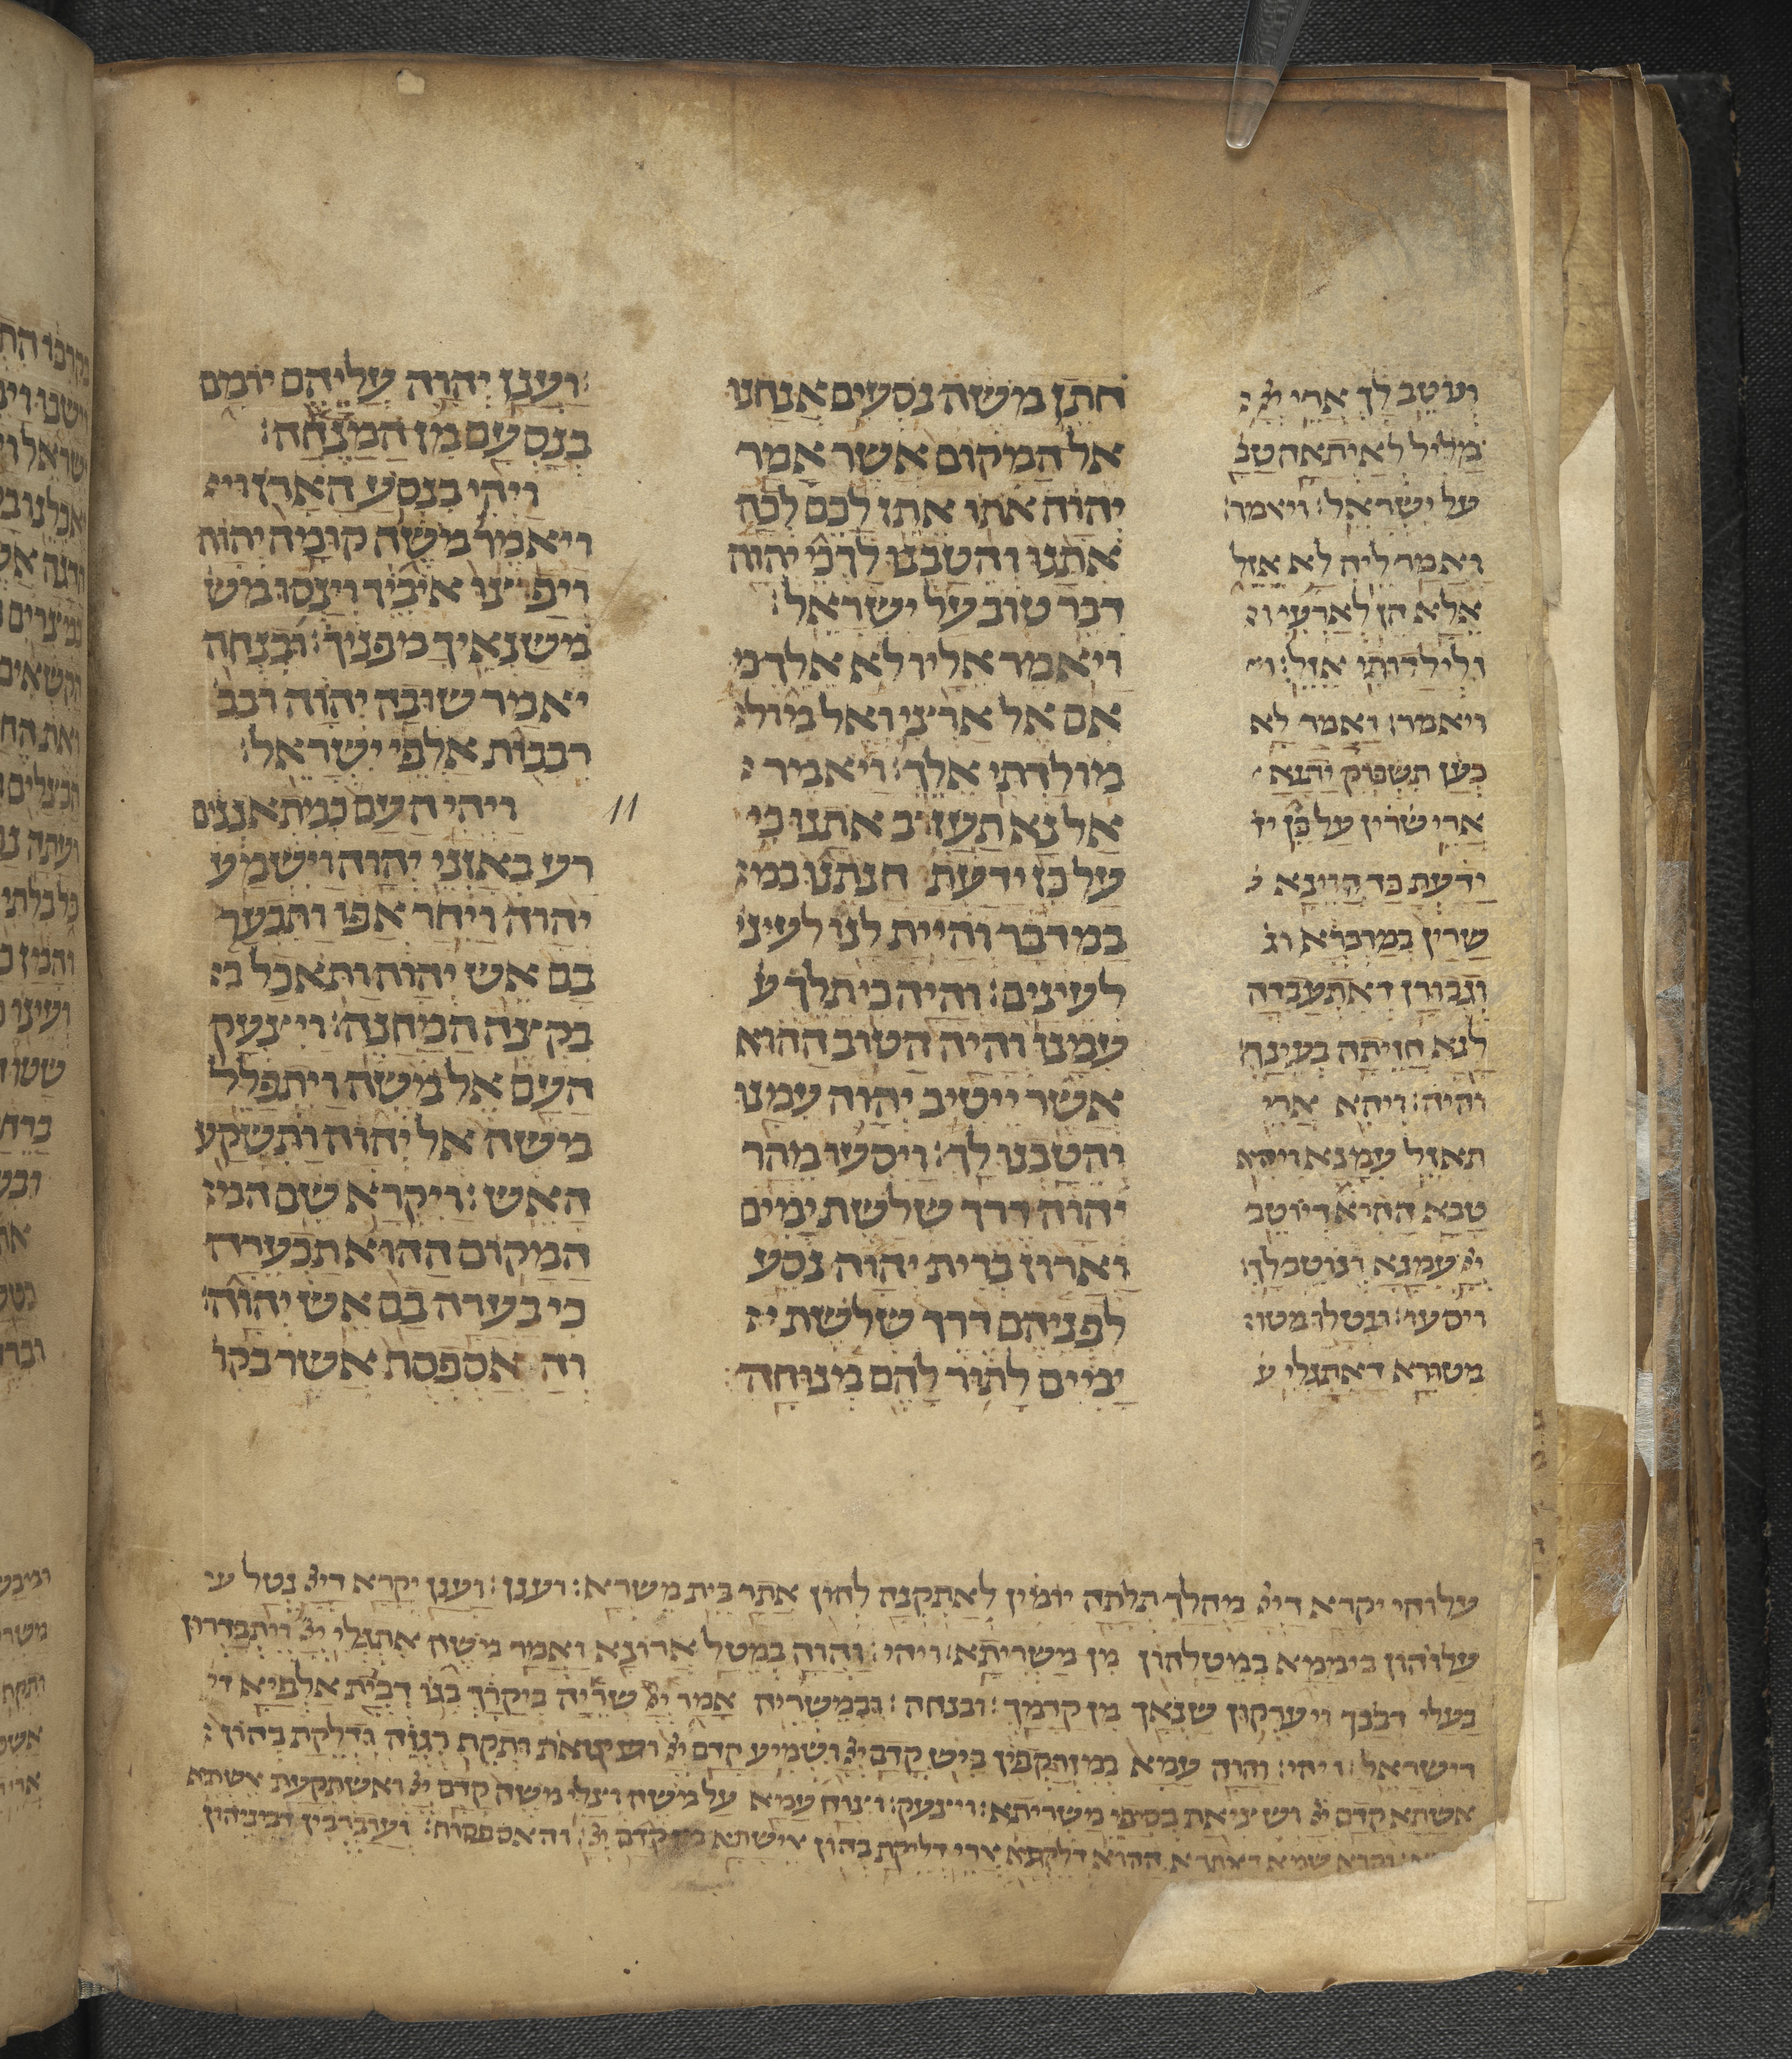 ונוטב לך ארי יי
מליל לאיתאה טב
על ישראל׃ ויאמר׃
ואמר ליה לא אזל
אלא הן לארעי ו
ולילדותי אזל׃ וי
ויאמר׃ ואמר לא
כען תשבוק יתנא
ארי שרין על כן יד
ידעת כד הוינא
שרין במדברא וג
וגבורן דאתעבדה
לנא חזיתה בעינך׃
והיה׃ ויהא ארי
תאזל עמנא ויהא
טבא ההיא דיוטב
יי עמנא ונוטב לך׃
ויסעו׃ ונטלו מטו
מטורא דאתגלי ע
חתן משה נסעים אנחנו
אל המקום אשר אמר
יהוה אתו אתן לכם לכה
אתנו והטבנו לך כי יהוה
דבר טוב על ישראל׃
ויאמר אליו לא אלך כי
אם אל ארצי ואל מול
מולדתי אלך׃ ויאמר
אל נא תעזב אתנו כי
על כן ידעת חנתנו במ
במדבר והיית לנו לעיני
לעינים׃ והיה כי תלך ע
עמנו והיה הטוב ההוא
אשר ייטיב יהוה עמנו
והטבנו לך׃ ויסעו מהר
יהוה דרך שלשת ימים
וארון ברית יהוה נסע
לפניהם דרך שלשת י
ימים לתור להם מנוחה׃
וענן יהוה עליהם יומם
בנסעם מן המחנה׃
ויהי בנסע הארן וי
ויאמר משה קומה יהוה
ויפצו איביך וינסו מש
משנאיך מפניך׃ ובנחה
יאמר שובה יהוה רבב
רבבות אלפי ישראל׃
11 ויהי העם כמתאננים
רע באזני יהוה וישמע
יהוה ויחר אפו ותבער
בם אש יהוה ותאכל ב
בקצה המחנה׃ ויצעק
העם אל משה ויתפלל
משה אל יהוה ותשקע
האש׃ ויקרא שם המ
המקום ההוא תבערה
כי בערה בם אש יהוה׃
וה אספסף אשר בקר
עלוהי יקרא דיי מהלך תלתה יומין לאתקנה להון אתר בית משרא׃ וענן׃ וענן יקרא דיי נטל ע
עלוהון ביממא במטלהון מן משריתא׃ ויהי׃ והוה במטל ארונא ואמר משה אתגלי יי ויתבדרון
בעלי דבבך ויערקון שנאך מן קדמך׃ ובנחה׃ ובמשריה אמר יי שריה ביקרך בגו רבות אלפיא די
דישראל׃ ויהי׃ והוה עמא כמזדקפין ביש קדם יי ושמיע קדם יי ותקף רגזה ודלקת בהון׃
אשתא קדם יי ושיציאת בסיפי משריתא׃ ויצעק׃ וצוח עמא על משה וצלי משה קדם יי ואשתקעת אשתא
וקרא שמא דאתרא ההוא דלקתא ארי דליקת בהון אישתא מן קדם יי׃ והאספסוף׃ וערברבין דביניהון